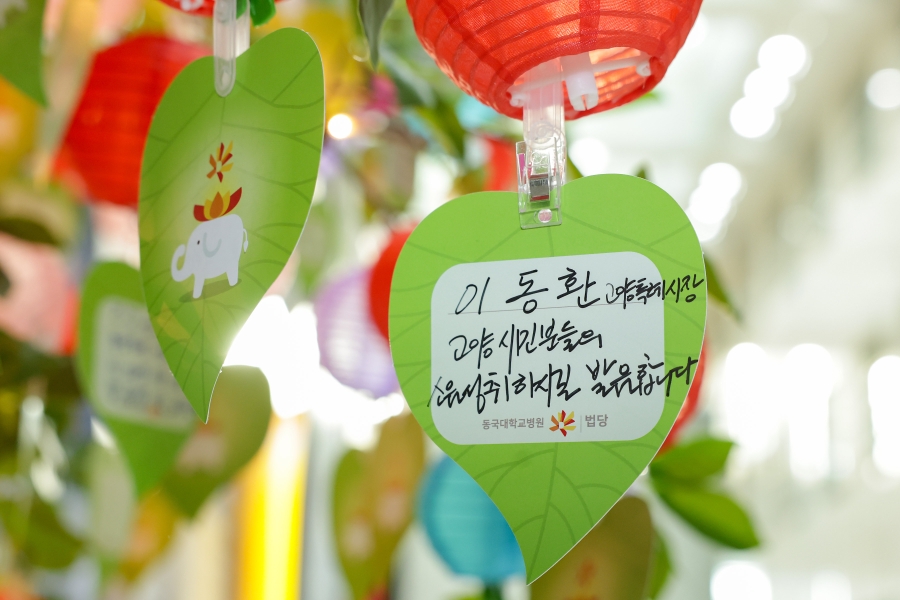 이동환 고양특례시장
고양 시민분들의
소원성취 하시길 발원합니다
동국대학교병원 법당